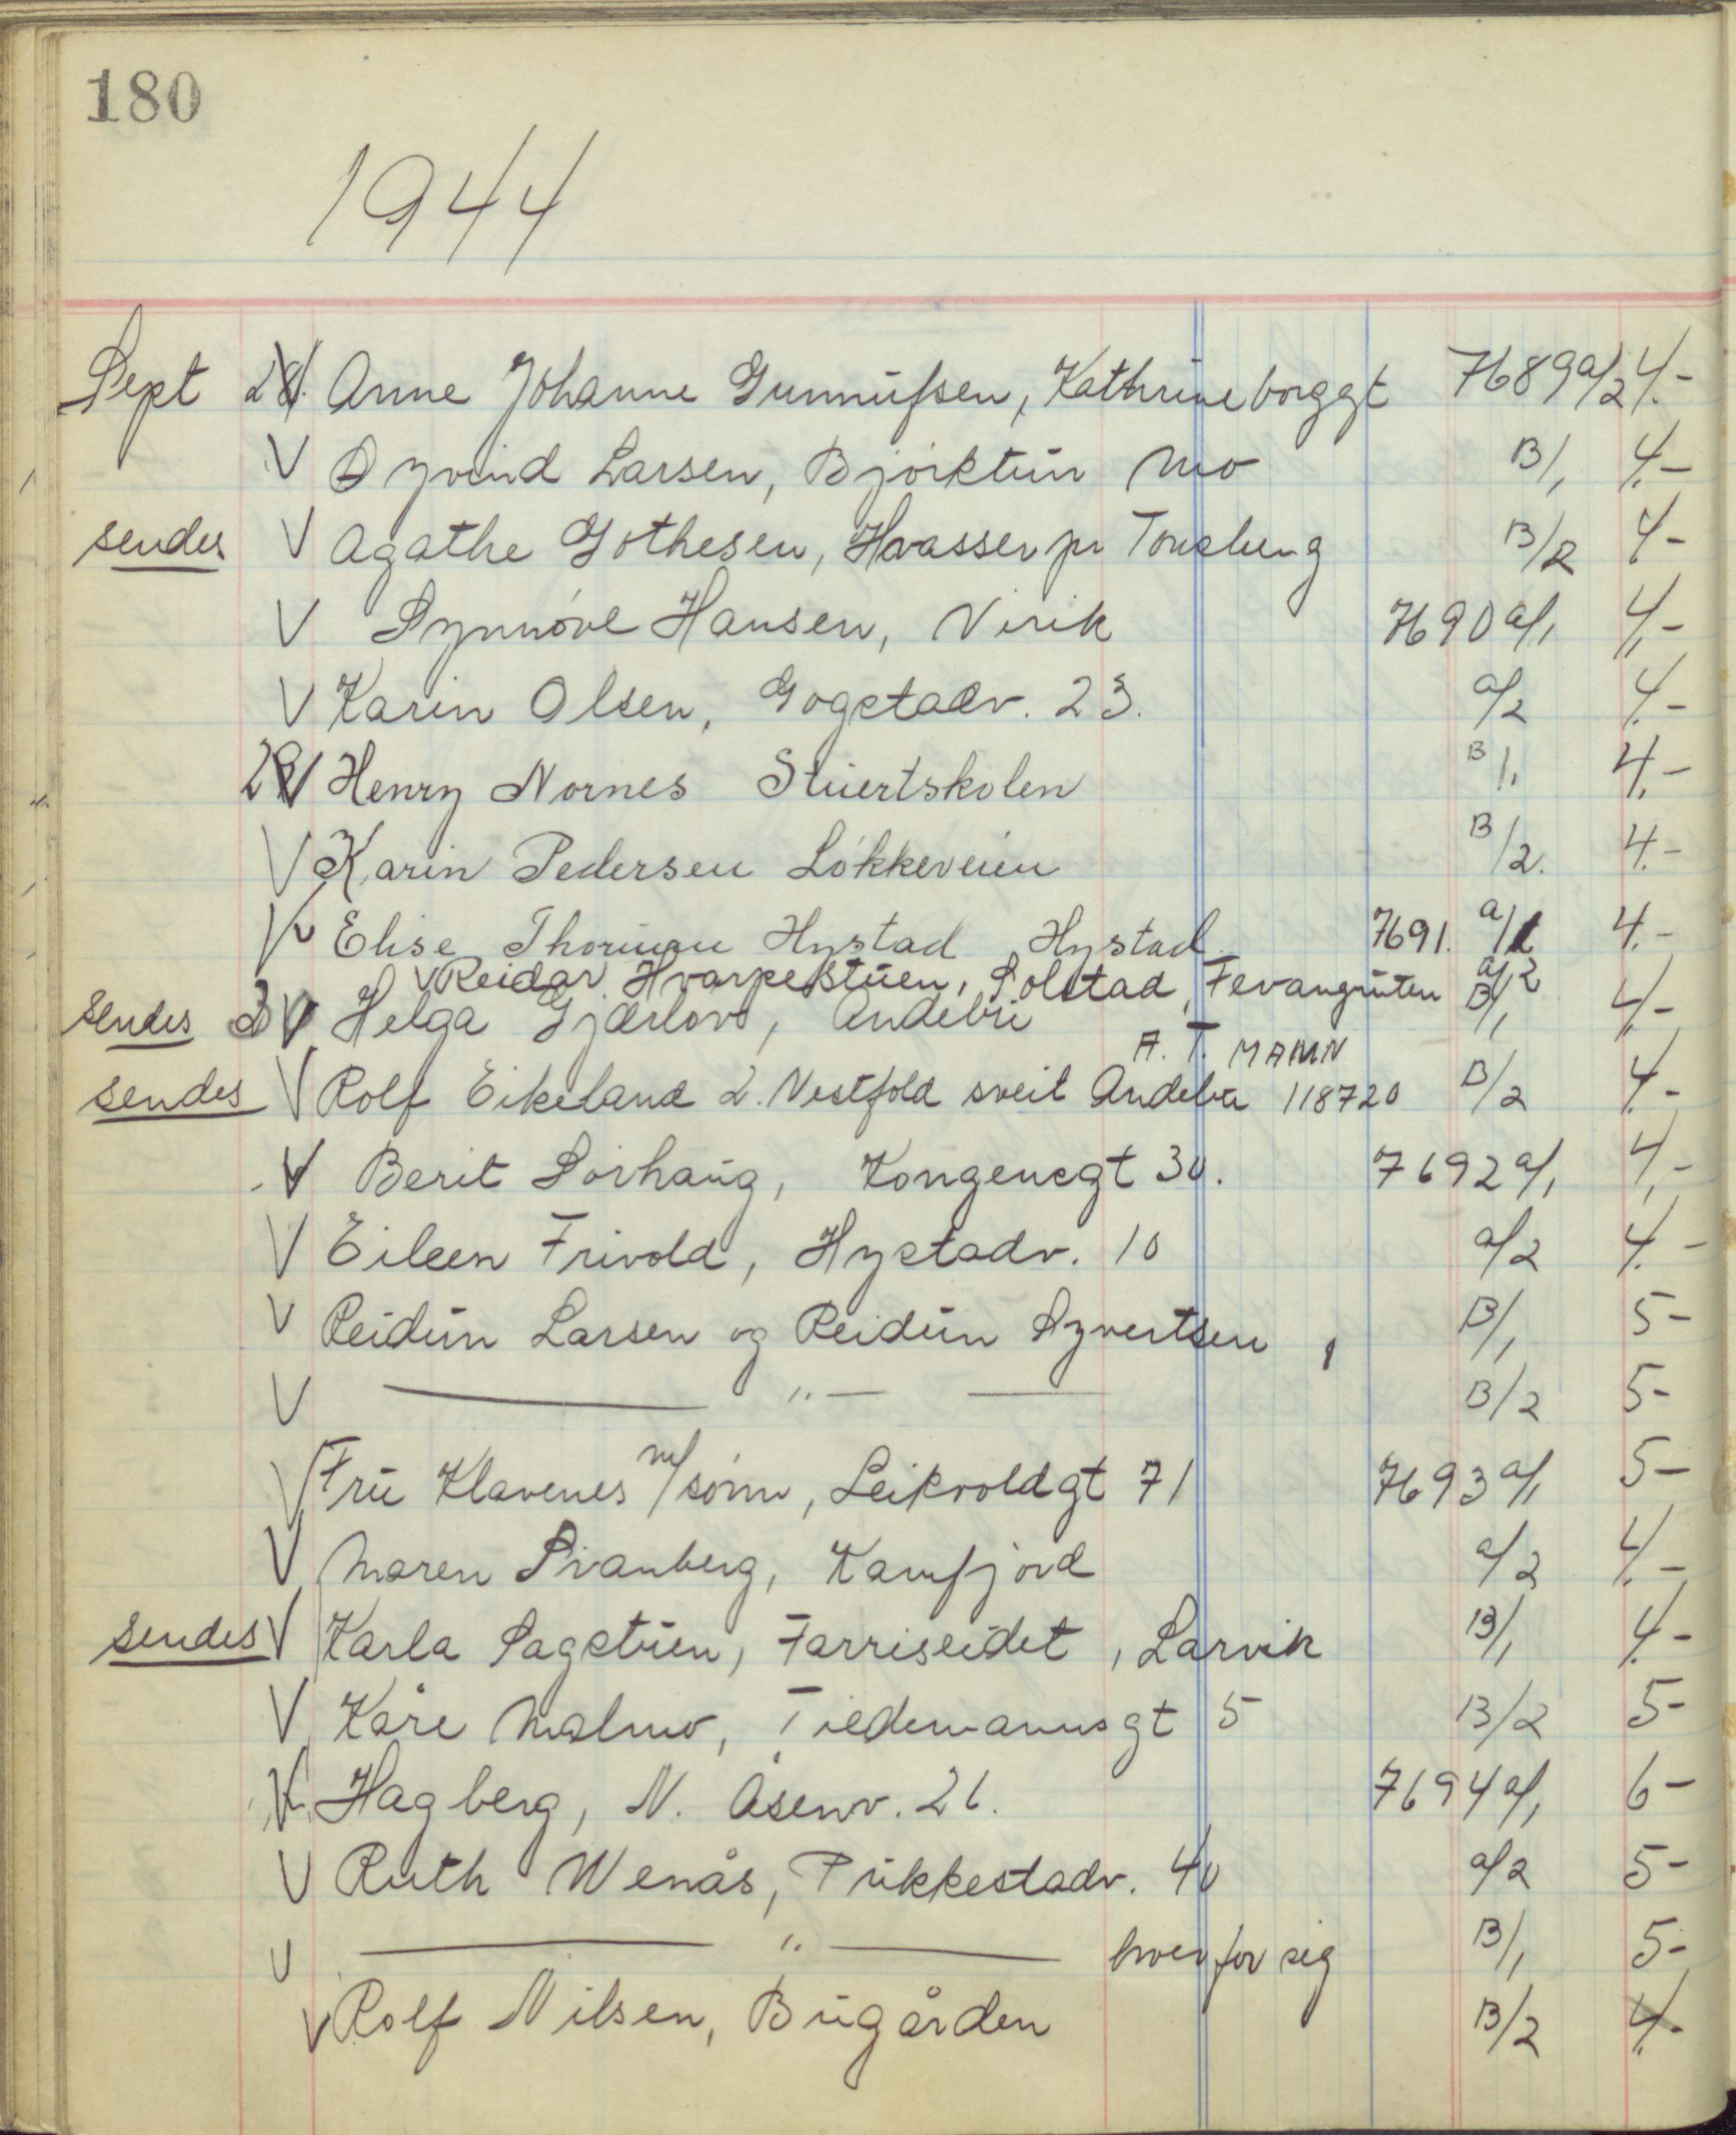 180
1944
Sept 28. V Anne Johanne Gunnufsen, Kathrineborggt 7689 a/2 4.-
V Øyvind Larsen, Bjørktun Mo B/1 4.-
sendes V Agathe Gothesen, Hvasser pr Tønsberg B/2 4-
V Synnøve Hansen, Virik 7690 a/1 4,-
V Karin Olsen, Gogstadv. 23. a/2 4.-
29 V Henry Nornes Stuertskolen B/1. 4.-
V Karin Pedersen Løkkeveien B/2. 4.-
V Elise Thorine Hystad Hystad 7691. a/1 4.-
V Reidar Hvarpestuen, Solstad, Fevangruten a/2
sendes 30 V Helga Gjærløv, Andebu B/1 4,-
A. T. MANN
sendes V Rolf Eikeland 2. Vestfold sveit Andebu 118720 B/2 4.-
V Berit Sørhaug, Kongensgt 30. 7692 a/1 4,-
V Eileen Frivold, Hystadv. 10 a/2 4.-
V Reidun Larsen og Reidun Syvertsen, B/1 5-
V — " — — B/2 5-
V Fru Klavenes m/sønn, Leikvoldgt 71 7693 a/1 5-
V Maren Svanberg, Kamfjord a/2 4.-
sendes V Karla Sagstuen, Farriseidet, Larvik B/1 4.-
V Kåre Malmo, Tiedemannsgt 5 B/2 5-
V Hagberg, N. Åsenv. 26. 7694 a/1 6-
V Ruth Wenås, Pukkestadv. 40 a/2 5-
V — " — hver for sig B/1 5-
V Rolf Nilsen, Bugården B/2 4.-